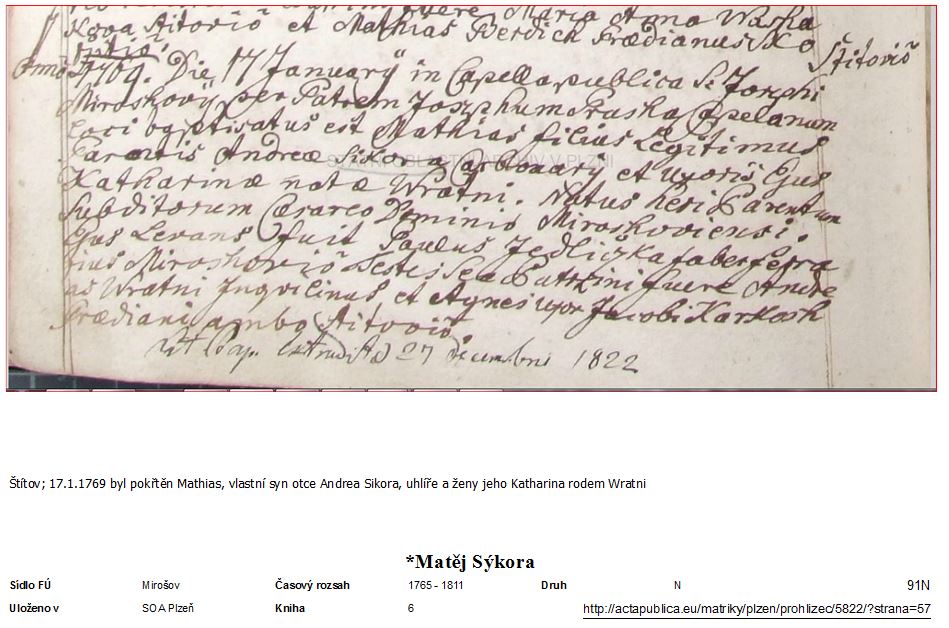 Maria Anna Waska
Kova Stitoviō et Mathias Berdich Prædianus Ko
Stitoviō
Anno 1769. Die 17 January in Capella publica S: Josephi
Miroschovÿ per Patrem Josephum Praska Capelanum
Loci baptisatus est Mathias filius Legitimus
Parentis Andreæ Sikora Carbonary et Uxoris Ejus
STÁTNÍ OBLASTNÍ ARCHIV V PLZNI
Katharinæ natæ Wratni. Natus heri Parentum
Subditorum Cæsareo Dominio Miroschoviensi.
Ejus Levans fuit Paulus Jedliczka faber ferra
rius Miroshoviō Testes seu Patrini fuere Andre
as Wratni Inqvilinus, et Agnes uxor Jacobi Karkosh
Prædiani, ambo Stitoviō.
27 Decembris 1822
Štítov; 17.1.1769 byl pokřtěn Mathias, vlastní syn otce Andrea Sikora, uhlíře a ženy jeho Katharina rodem Wratni
*Matěj Sýkora
Sídlo FÚ Mirošov Časový rozsah 1765 - 1811 Druh N 91N
Uloženo v SOA Plzeň Kniha 6 http://actapublica.eu/matriky/plzen/prohlizec/5822/?strana=57